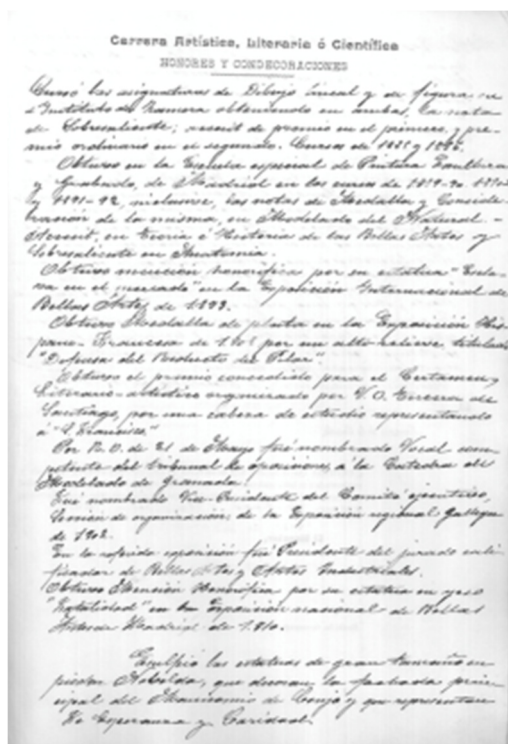 Carrera Artística, Literaria ó Científica
HONORES Y CONDECORACIONES
Cursó las asignaturas de Dibujo Lineal y de figura en
el Instituto de Zamora obteniendo en ambas, la nota
de Sobresaliente; accesit de premio en el primero, y pre-
mio ordinario en el segundo. Cursos de
Obtuvo en la Escuela especial de Pintura Escultura
y Grabado, de Madrid en los cursos de
y 1891-92, inclusive, las notas de Medalla y Conside-
ración de la misma, en Modelado del Natural -
Accesit, en Teoria é Historia de las Bellas Artes y
Sobresaliente en Anatomia.
Obtuvo mención honorifica por su estatua "Escla-
va en el mercado" en la Exposición Internacional de
Bellas Artes de
Obtuvo Medalla de plata en la Exposición His-
pano-Francesa de por un alto-relieve titulado
"Defensa del Reducto del Pilar".
Obtuvo el premio concedido para el Certamen
Literario-artístico organizado por
Santiago, por una cabeza de estudio representando
á "S. Francisco."
Por R. O. de 21 de Mayo fué nombrado Vocal com-
petente del tribunal de oposiciones, á la Catedra de
Modelado de Granada.
Fué nombrado Vice-Presidente del Comité ejecutivo,
Sección de organización, de la Exposición regional Gallega
de
En la referida exposición fué Presidente del jurado cali-
ficador de Bellas Artes y Artes Industriales.
Obtuvo Mención Honorifica por su estatua en yeso
"Natividad" en la Exposición nacional de Bellas
Artes de Madrid de 1.910.
Esculpió las estatuas de gran tamaño en
piedra que decoran la fachada prin-
cipal del Manicomio de Conjo y que representan
Fe Esperanza y Caridad.